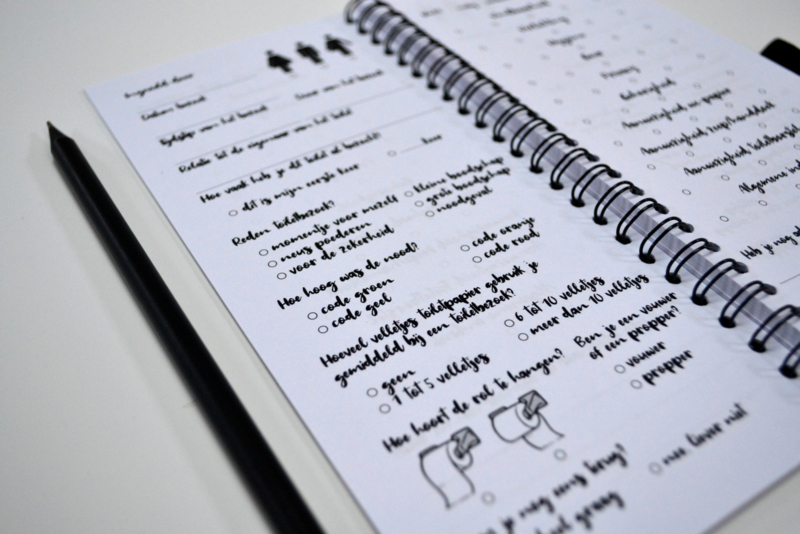 Ingevuld door
Datum bezoek
Duur van het bezoek
Tijdstip van het bezoek
Relatie tot de eigenaar van het toilet
Hoe vaak heb je dit toilet al bezocht?
dit is mijn eerste keer
keer
Reden toiletbezoek?
momentje voor mezelf
neus poederen
voor de zekerheid
kleine boodschap
grote boodschap
noodgeval
Hoe hoog was de nood?
code groen
code geel
code oranje
code rood
Hoeveel velletjes toiletpapier gebruik je
gemiddeld bij een toiletbezoek?
geen
1 tot 5 velletjes
6 tot 10 velletjes
meer dan 10 velletjes
Hoe hoort de rol te hangen?
Ben je een vouwer
of een propper?
vouwer
propper
je nog eens terug?
heel graag
nee liever niet
Hygiëne
Geur
Privacy
Gezelligheid
Aanwezigheid wc-papier
Aanwezigheid zeep/handdoek
Aanwezigheid toiletborstel
Algemene in
Heb je nog